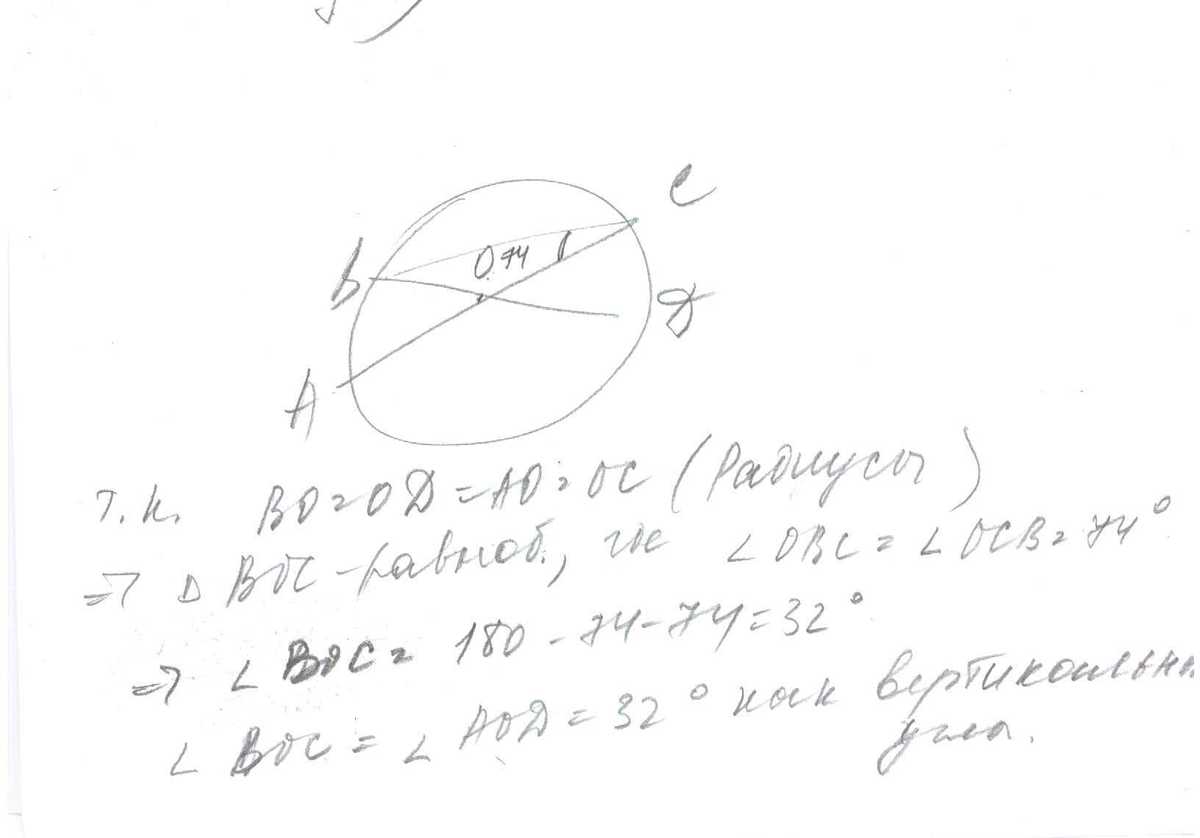 C
B
0.74
D
A
т.к. BO=OD=AO=OC (Радиусы)
=> △ BOC - равноб., где ∠OBC = ∠OCB = 74°
=> ∠ BOC = 180 - 74 - 74 = 32°
∠ BOC = ∠ AOD = 32° как вертикальны
угла.